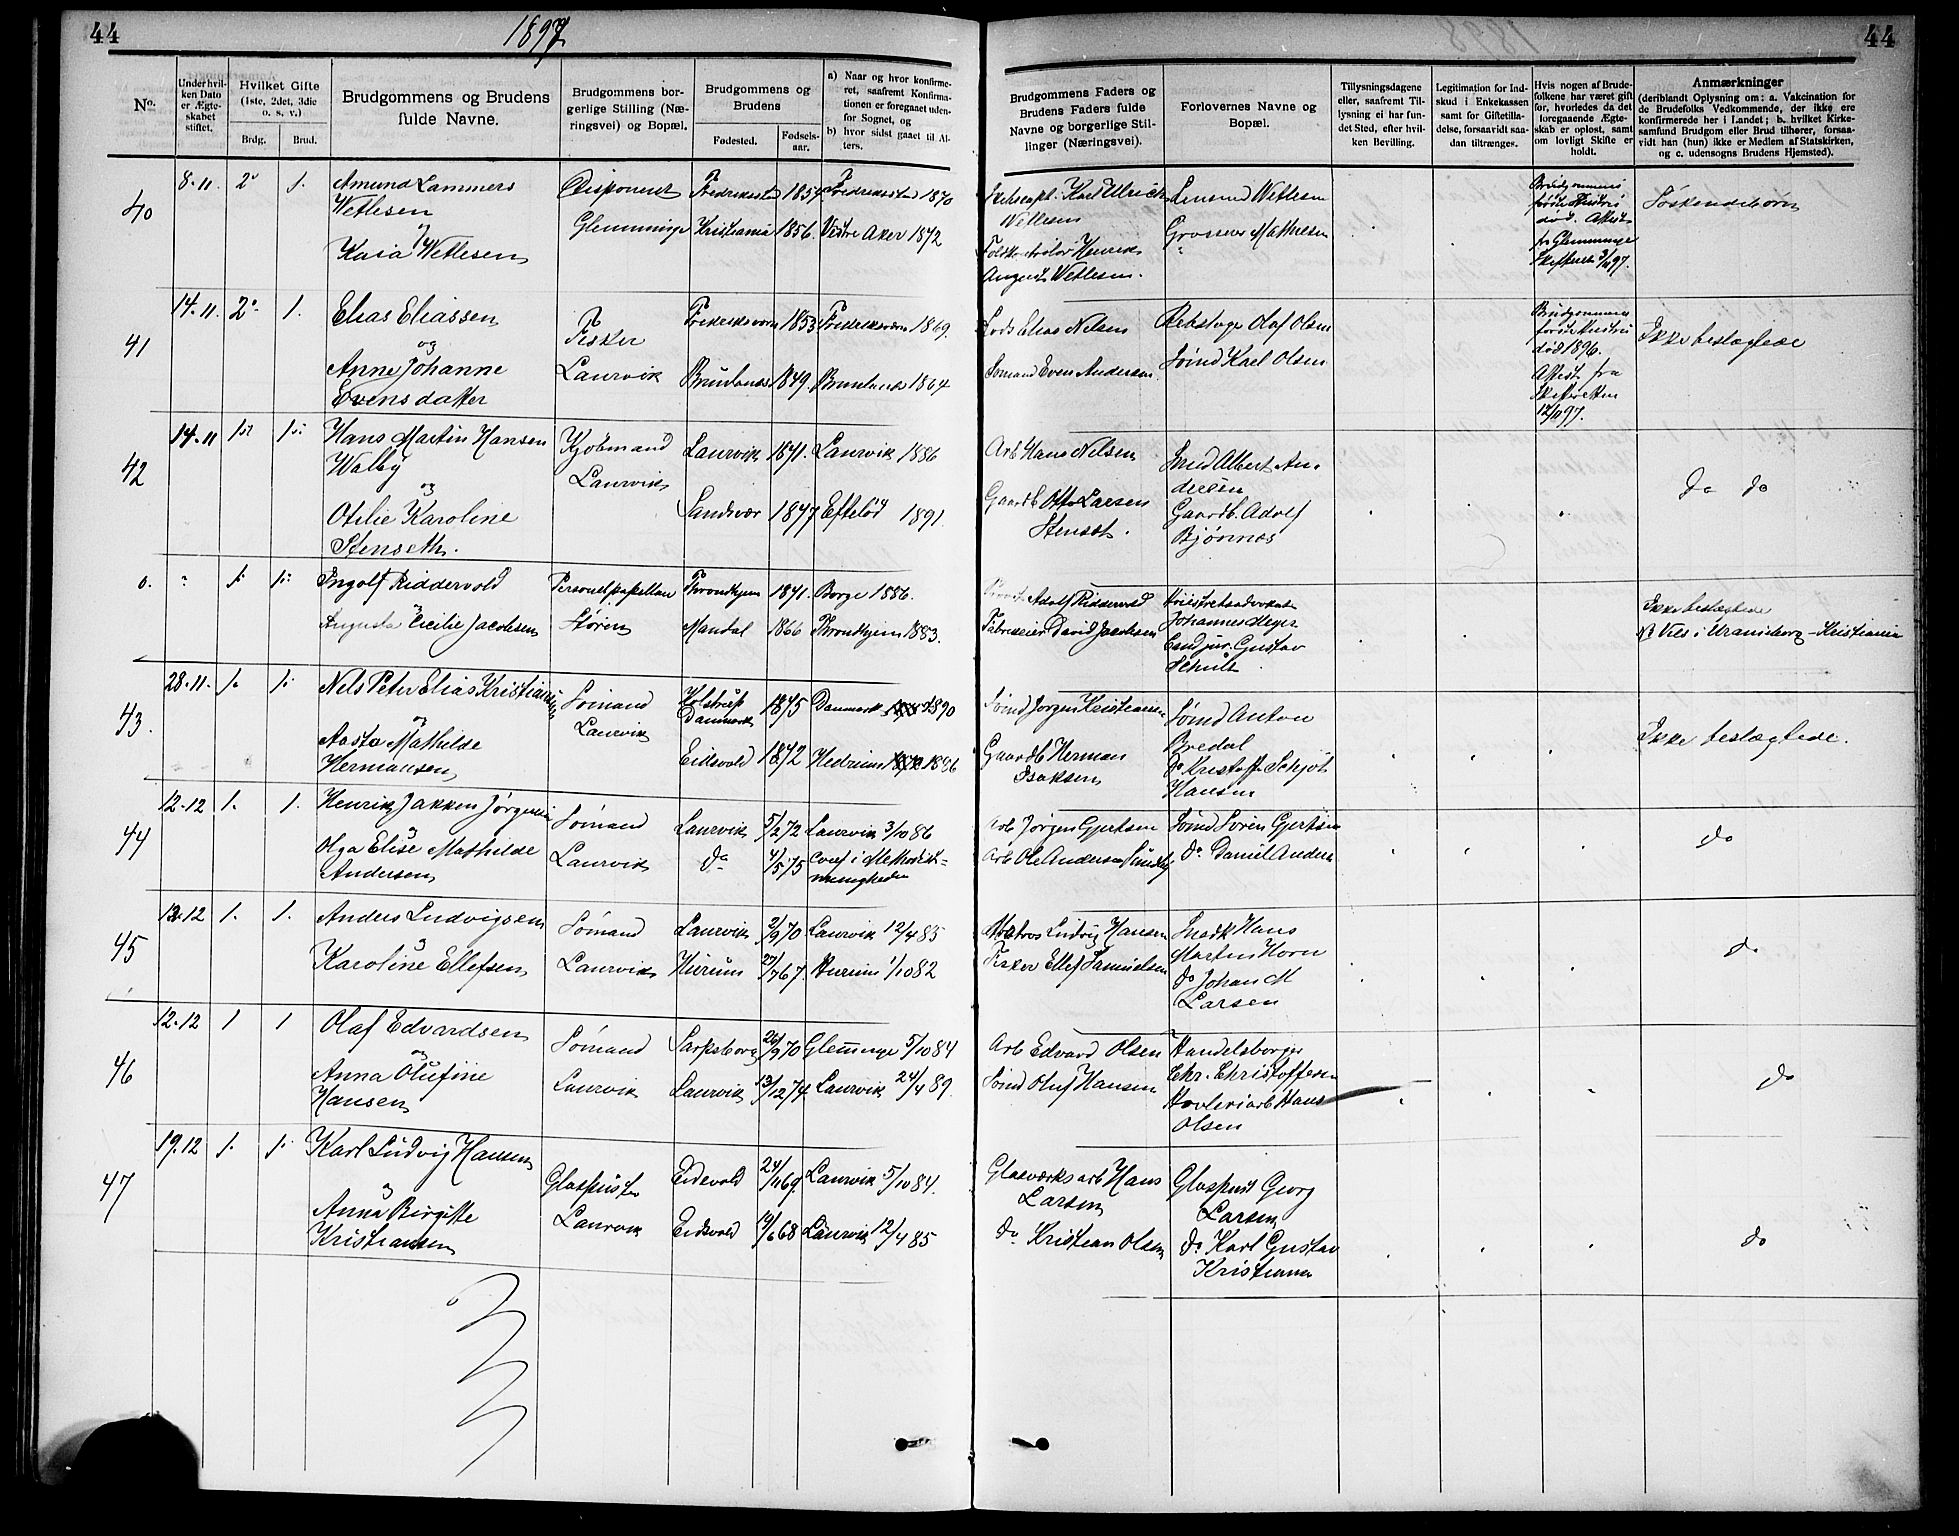 44
1897
44
No.
Under hvil-
ken Dato
er Ægte-
skabet
stiftet.
Hvilket Gifte
(1ste, 2det, 3die
o. s. v.)
Brdg.
Brud.
Brudgommens og Brudens
fulde Navne.
Brudgommens bor-
gerlige Stilling (Næ-
ringsvei) og Bopæl.
Brudgommens og
Brudens
Fødested.
Fødsels-
aar.
a) Naar og hvor konfirme-
ret, saafremt Konfirma-
tionen er foregaaet uden-
for Sognet, og
b) hvor sidst gaaet til Al-
ters.
Brudgommens Faders og
Brudens Faders fulde
Navne og borgerlige Stil-
linger (Næringsvei).
Forlovernes Navne og
Bopæl.
Tillysningsdagene
eller, saafremt Til-
lysning ei har fun-
det Sted, efter hvil-
ken Bevilling.
Legitimation for Ind-
skud i Enkekassen
samt for Giftetilla-
delse, forsaavidt saa-
dan tiltrænges.
Hvis nogen af Brude-
folkene har været gift
før, hvorledes da det
foregaaende Ægte-
skab er opløst, samt
om lovligt Skifte er
holdt.
Anmærkninger
(deriblandt Oplysning om: a. Vakcination for
de Brudefolks Vedkommende, der ikke ere
konfirmerede her i Landet; b. hvilket Kirke-
samfund Brudgom eller Brud tilhører, forsaa-
vidt han (hun) ikke er Medlem af Statskirken,
og c. udensogns Brudens Hjemsted).
40
8-11.
2'
1.
Amund Lammers
Wetlesen
og
Kaia Wetlesen
Disponent
Glemminge
Fredrikstad 1857 Fredrikstad 1870
Kristiania 1856. Vestre Aker 1872
Skibscapt. Karl Ulrich
Wetlesen
Toldkontrolør Henrik
August Wetlesen.
Lensmd Wetlesen
Grosserer Mathiesen
Brudgommens
første Hustru
død. Attest
fr Glemminge
Skifteret 3/11 97.
Søskendebørn
41
14-11.
2'
1.
Elias Eliassen
og
Anne Johanne
Evensdatter
Fisker
Laurvik
Fredriksværn 1853 Fredriksværn 1869.
Brunlanes 1849. Brunlanes 1864
Lods Elias Nilsen
Sømand Even Andersen.
Rebslager Olaf Olsen
Sømd Karl Olsen
Brudgommens
første Hustru
død 1896.
Attest fra
Skifteretten
12/10 97.
Ikke beslægtede
42
14-11
1st
1st
Hans Martin Hansen
Walby
og
Otilie Karoline
Stenseth.
Kjøbmand
Laurvik
Laurvik 1871. Laurvik 1886
Sandsvær 1877 Efteløt 1891.
Arb Hans Nilsen
Gaardb. Otto Larsen
Stenset.
Smed Albert An-
dersen
Gaardb. Adolf
Bjønnes
do do
0.
"
1.
1.
Ingolf Riddervold
og
Augusta Cicilie Jacobsen
Personelkapellan
Støren
Throndhjem 1871. Borge 1886.
Mandal 1866 Throndhjem 1883.
Provst Adolf Riddervold
Fabrikeier David Jacobsen
Høiesteretsadvokat
Johannes Meyer
Cand jur. Gustav
Schult
Ikke beslægtede
NB Viet i Uranieborg - Kristiania
43.
28.11.
1.
1.
Nels Peter Elias Kristiansen
og
Aasta Mathilde
Hermansen
Sømand
Laurvik
Holstrup
Danmark 1875 Danmark 1890
Eidsvold 1872 Hedrum 1886
Sømd Jørgen Kristiansen
Gaardb Herman
Isaksen
Sømd Anton
Bredal
do Kristoff. Schjøt
Hansen
Ikke beslægtede.
44
12-12
1.
1.
Henrik Jakken Jørgensen
og
Olga Elise Mathilde
Andersen
Sømand
Laurvik
Laurvik 5/2 72 Laurvik 3/10 86
do 4/5 75 overf i Methodist-
menigheden
Arb Jørgen Gjertsen
Arb Ole Andersen Sundby
Sømd Søren Gjertsen
do Daniel Anders
do
45
12-12
1.
1.
Anders Ludvigsen
og
Karoline Ellefsen
Sømand
Laurvik
Laurvik 2/9 70 Laurvik 12/4 85
Hurum 27/7 67. Hurum 1/10 82
Matros Ludvig Hansen
Fisker Ellef Samuelsen
Snedk Hans
Martin Horn
do Johan M
Larsen
do
46
12-12
1
1
Olaf Edvardsen
og
Anna Olufine
Hansen
Sømand
Laurvik
Sarpsborg 26/9 70 Glemminge 5/10 84
Laurvik 13/12 74 Laurvik 24/4 89.
Arb Edvard Olsen
Sømd Oluf Hansen
Handelsborger
Chr. Christoffersen
Høvleriarb Hans
Olsen
do
47
19.12
1.
1.
Karl Ludvig Hansen
og
Anna Birgitte
Kristiansen
Glaspuster
Laurvik
Eidsvold 24/11 69. Laurvik 5/10 84.
Eidsvold 19/6 68 Laurvik 12/4 85
Glasværksarb Hans
Larsen
do Kristian Olsen
Glaspust Georg
Larsen
do Karl Gustav
Kristiansen
do